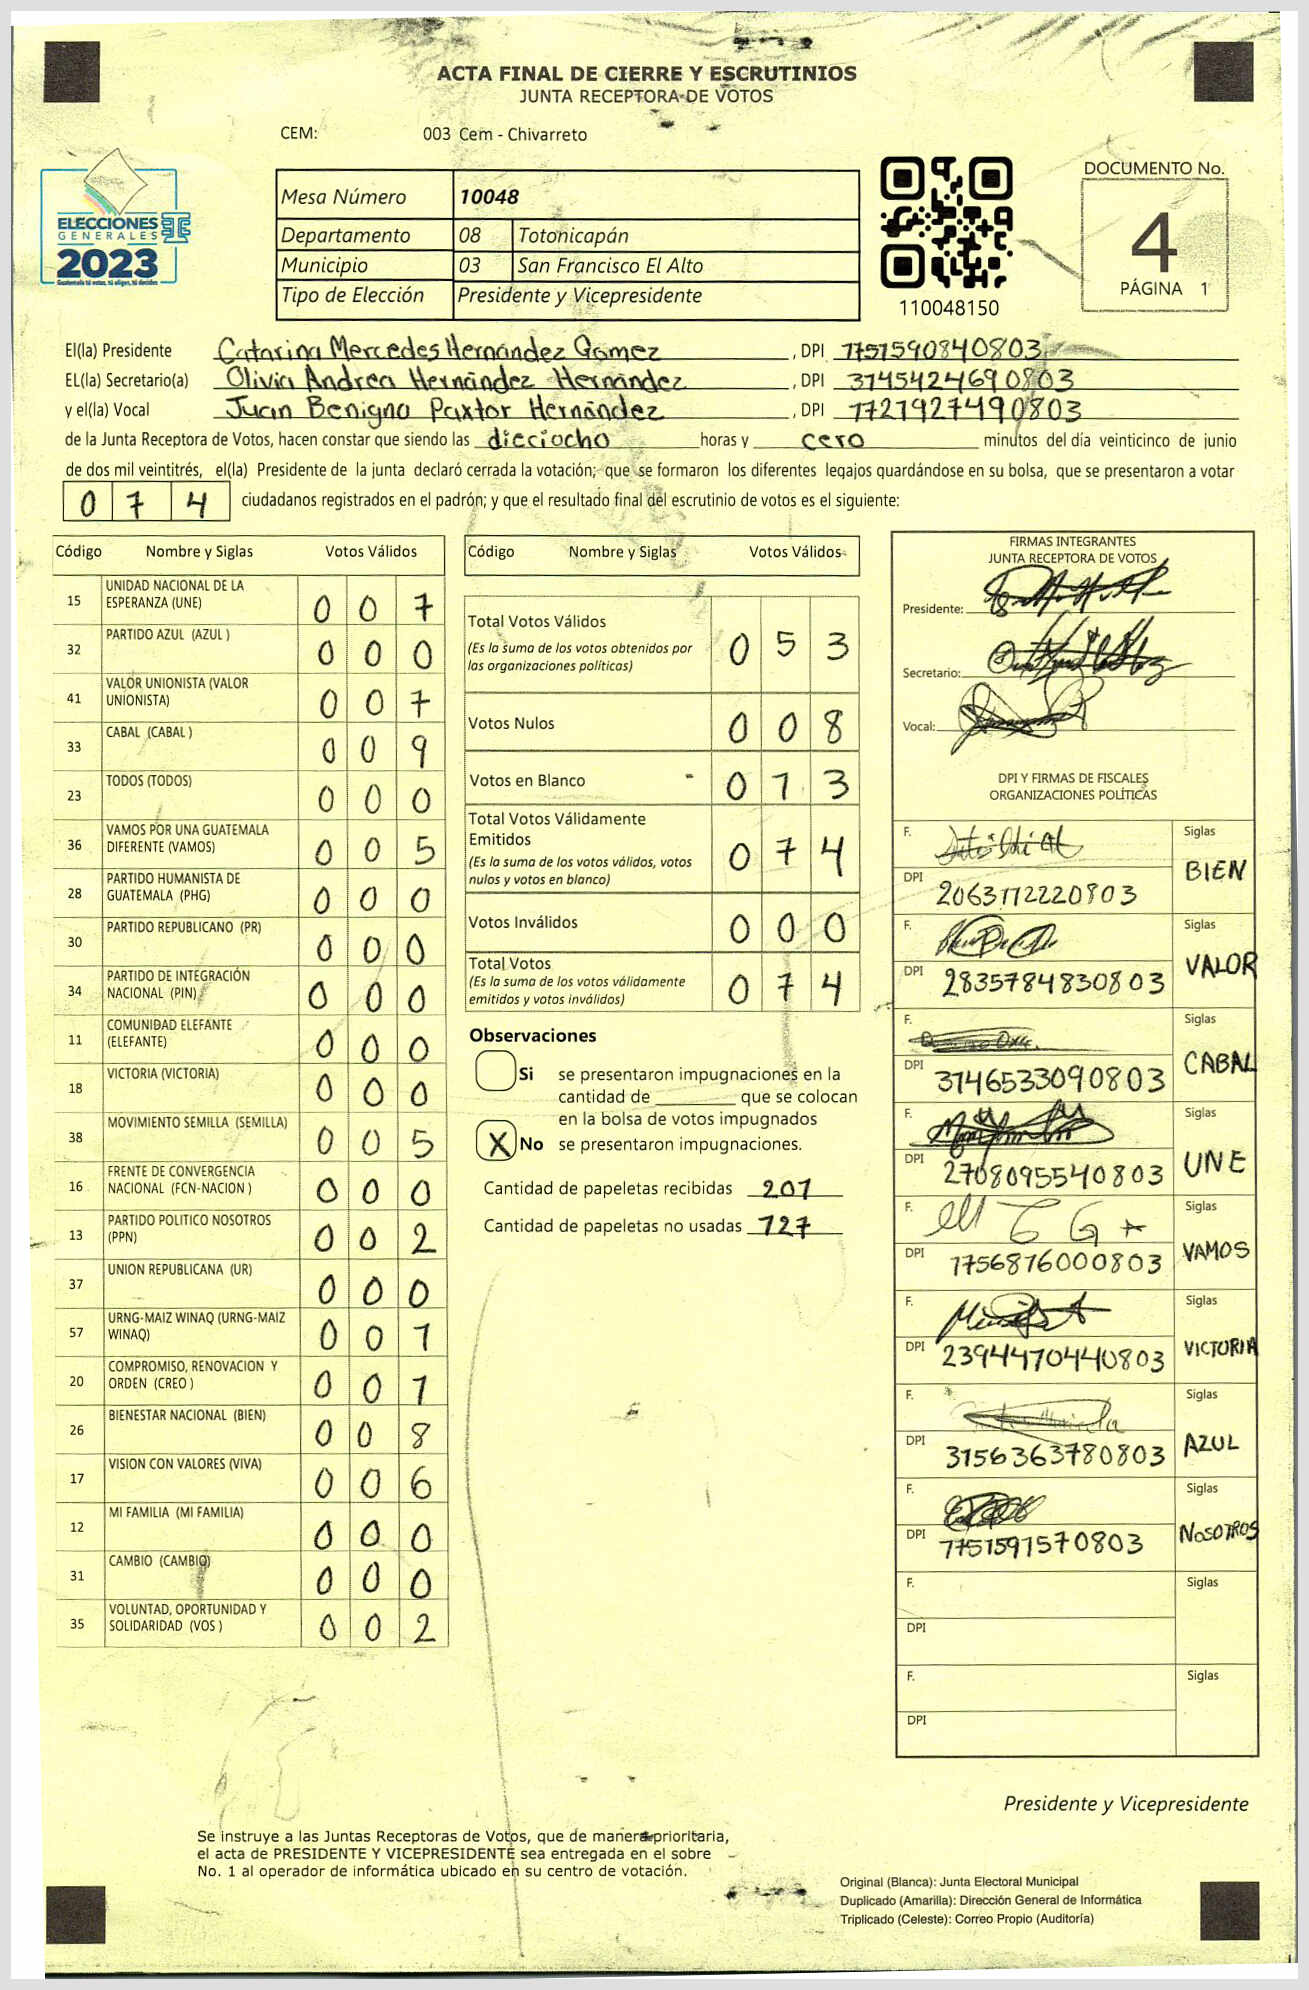 ACTA FINAL DE CIERRE Y ESCRUTINIOS
JUNTA RECEPTORA DE VOTOS
CEM: 003 Cem - Chivarreto
ELECCIONES
GENERALES
2023
Guatemala tú votas, tú eliges, tú decides
Mesa Número 10048
Departamento 08 Totonicapán
Municipio 03 San Francisco El Alto
Tipo de Elección Presidente y Vicepresidente
110048150
DOCUMENTO No.
4
PÁGINA 1
El(la) Presidente Catarina Mercedes Hernández Gómez, DPI 1751590840803
EL(la) Secretario(a) Olivia Andrea Hernández Hernández, DPI 3145424690803
y el(la) Vocal Juan Benigno Paxtor Hernández, DPI 1721927490803
de la Junta Receptora de Votos, hacen constar que siendo las dieciocho horas y cero minutos del día veinticinco de junio
de dos mil veintitrés, el(la) Presidente de la junta declaró cerrada la votación; que se formaron los diferentes legajos guardándose en su bolsa, que se presentaron a votar
074 ciudadanos registrados en el padrón; y que el resultado final del escrutinio de votos es el siguiente:
Código Nombre y Siglas Votos Válidos
15 UNIDAD NACIONAL DE LA ESPERANZA (UNE) 0 0 7
32 PARTIDO AZUL (AZUL ) 0 0 0
41 VALOR UNIONISTA (VALOR UNIONISTA) 0 0 7
33 CABAL (CABAL ) 0 0 9
23 TODOS (TODOS) 0 0 0
36 VAMOS POR UNA GUATEMALA DIFERENTE (VAMOS) 0 0 5
28 PARTIDO HUMANISTA DE GUATEMALA (PHG) 0 0 0
30 PARTIDO REPUBLICANO (PR) 0 0 0
34 PARTIDO DE INTEGRACIÓN NACIONAL (PIN) 0 0 0
11 COMUNIDAD ELEFANTE (ELEFANTE) 0 0 0
18 VICTORIA (VICTORIA) 0 0 0
38 MOVIMIENTO SEMILLA (SEMILLA) 0 0 5
16 FRENTE DE CONVERGENCIA NACIONAL (FCN-NACION ) 0 0 0
13 PARTIDO POLITICO NOSOTROS (PPN) 0 0 2
37 UNION REPUBLICANA (UR) 0 0 0
57 URNG-MAIZ WINAQ (URNG-MAIZ WINAQ) 0 0 1
20 COMPROMISO, RENOVACION Y ORDEN (CREO ) 0 0 1
26 BIENESTAR NACIONAL (BIEN) 0 0 8
17 VISION CON VALORES (VIVA) 0 0 6
12 MI FAMILIA (MI FAMILIA) 0 0 0
31 CAMBIO (CAMBIO) 0 0 0
35 VOLUNTAD, OPORTUNIDAD Y SOLIDARIDAD (VOS ) 0 0 2
Código Nombre y Siglas Votos Válidos
Total Votos Válidos 0 5 3
(Es la suma de los votos obtenidos por
las organizaciones políticas)
Votos Nulos 0 0 8
Votos en Blanco 0 1 3
Total Votos Válidamente
Emitidos 0 7 4
(Es la suma de los votos válidos, votos
nulos y votos en blanco)
Votos Inválidos 0 0 0
Total Votos 0 7 4
(Es la suma de los votos válidamente
emitidos y votos inválidos)
Observaciones
Si se presentaron impugnaciones en la
cantidad de ________ que se colocan
en la bolsa de votos impugnados
X No se presentaron impugnaciones.
Cantidad de papeletas recibidas 201
Cantidad de papeletas no usadas 127
FIRMAS INTEGRANTES
JUNTA RECEPTORA DE VOTOS
Presidente:
Secretario:
Vocal:
DPI Y FIRMAS DE FISCALES
ORGANIZACIONES POLÍTICAS
F. Siglas
DPI 2063172220803 BIEN
F. Siglas
DPI 2835784830803 VALOR
F. Siglas
DPI 3146533090803 CABAL
F. Siglas
DPI 2708095540803 UNE
F. Siglas
DPI 1756876000803 VAMOS
F. Siglas
DPI 2394470440803 VICTORIA
F. Siglas
DPI 3156363780803 AZUL
F. Siglas
DPI 1751591570803 NOSOTROS
F. Siglas
DPI
F. Siglas
DPI
Presidente y Vicepresidente
Se instruye a las Juntas Receptoras de Votos, que de manera prioritaria,
el acta de PRESIDENTE Y VICEPRESIDENTE sea entregada en el sobre
No. 1 al operador de informática ubicado en su centro de votación.
Original (Blanca): Junta Electoral Municipal
Duplicado (Amarilla): Dirección General de Informática
Triplicado (Celeste): Correo Propio (Auditoría)